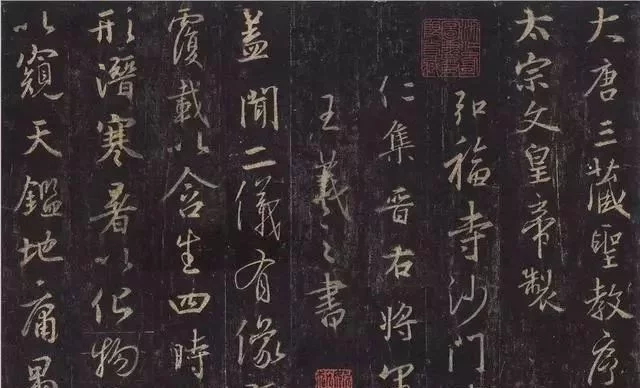 大唐三藏聖教序
太宗文皇帝製
弘福寺沙門
仁集晋右將軍
王羲之書
蓋聞二儀有像
覆載以含生四時
形潛寒暑以化物
以窺天鑑地庸愚